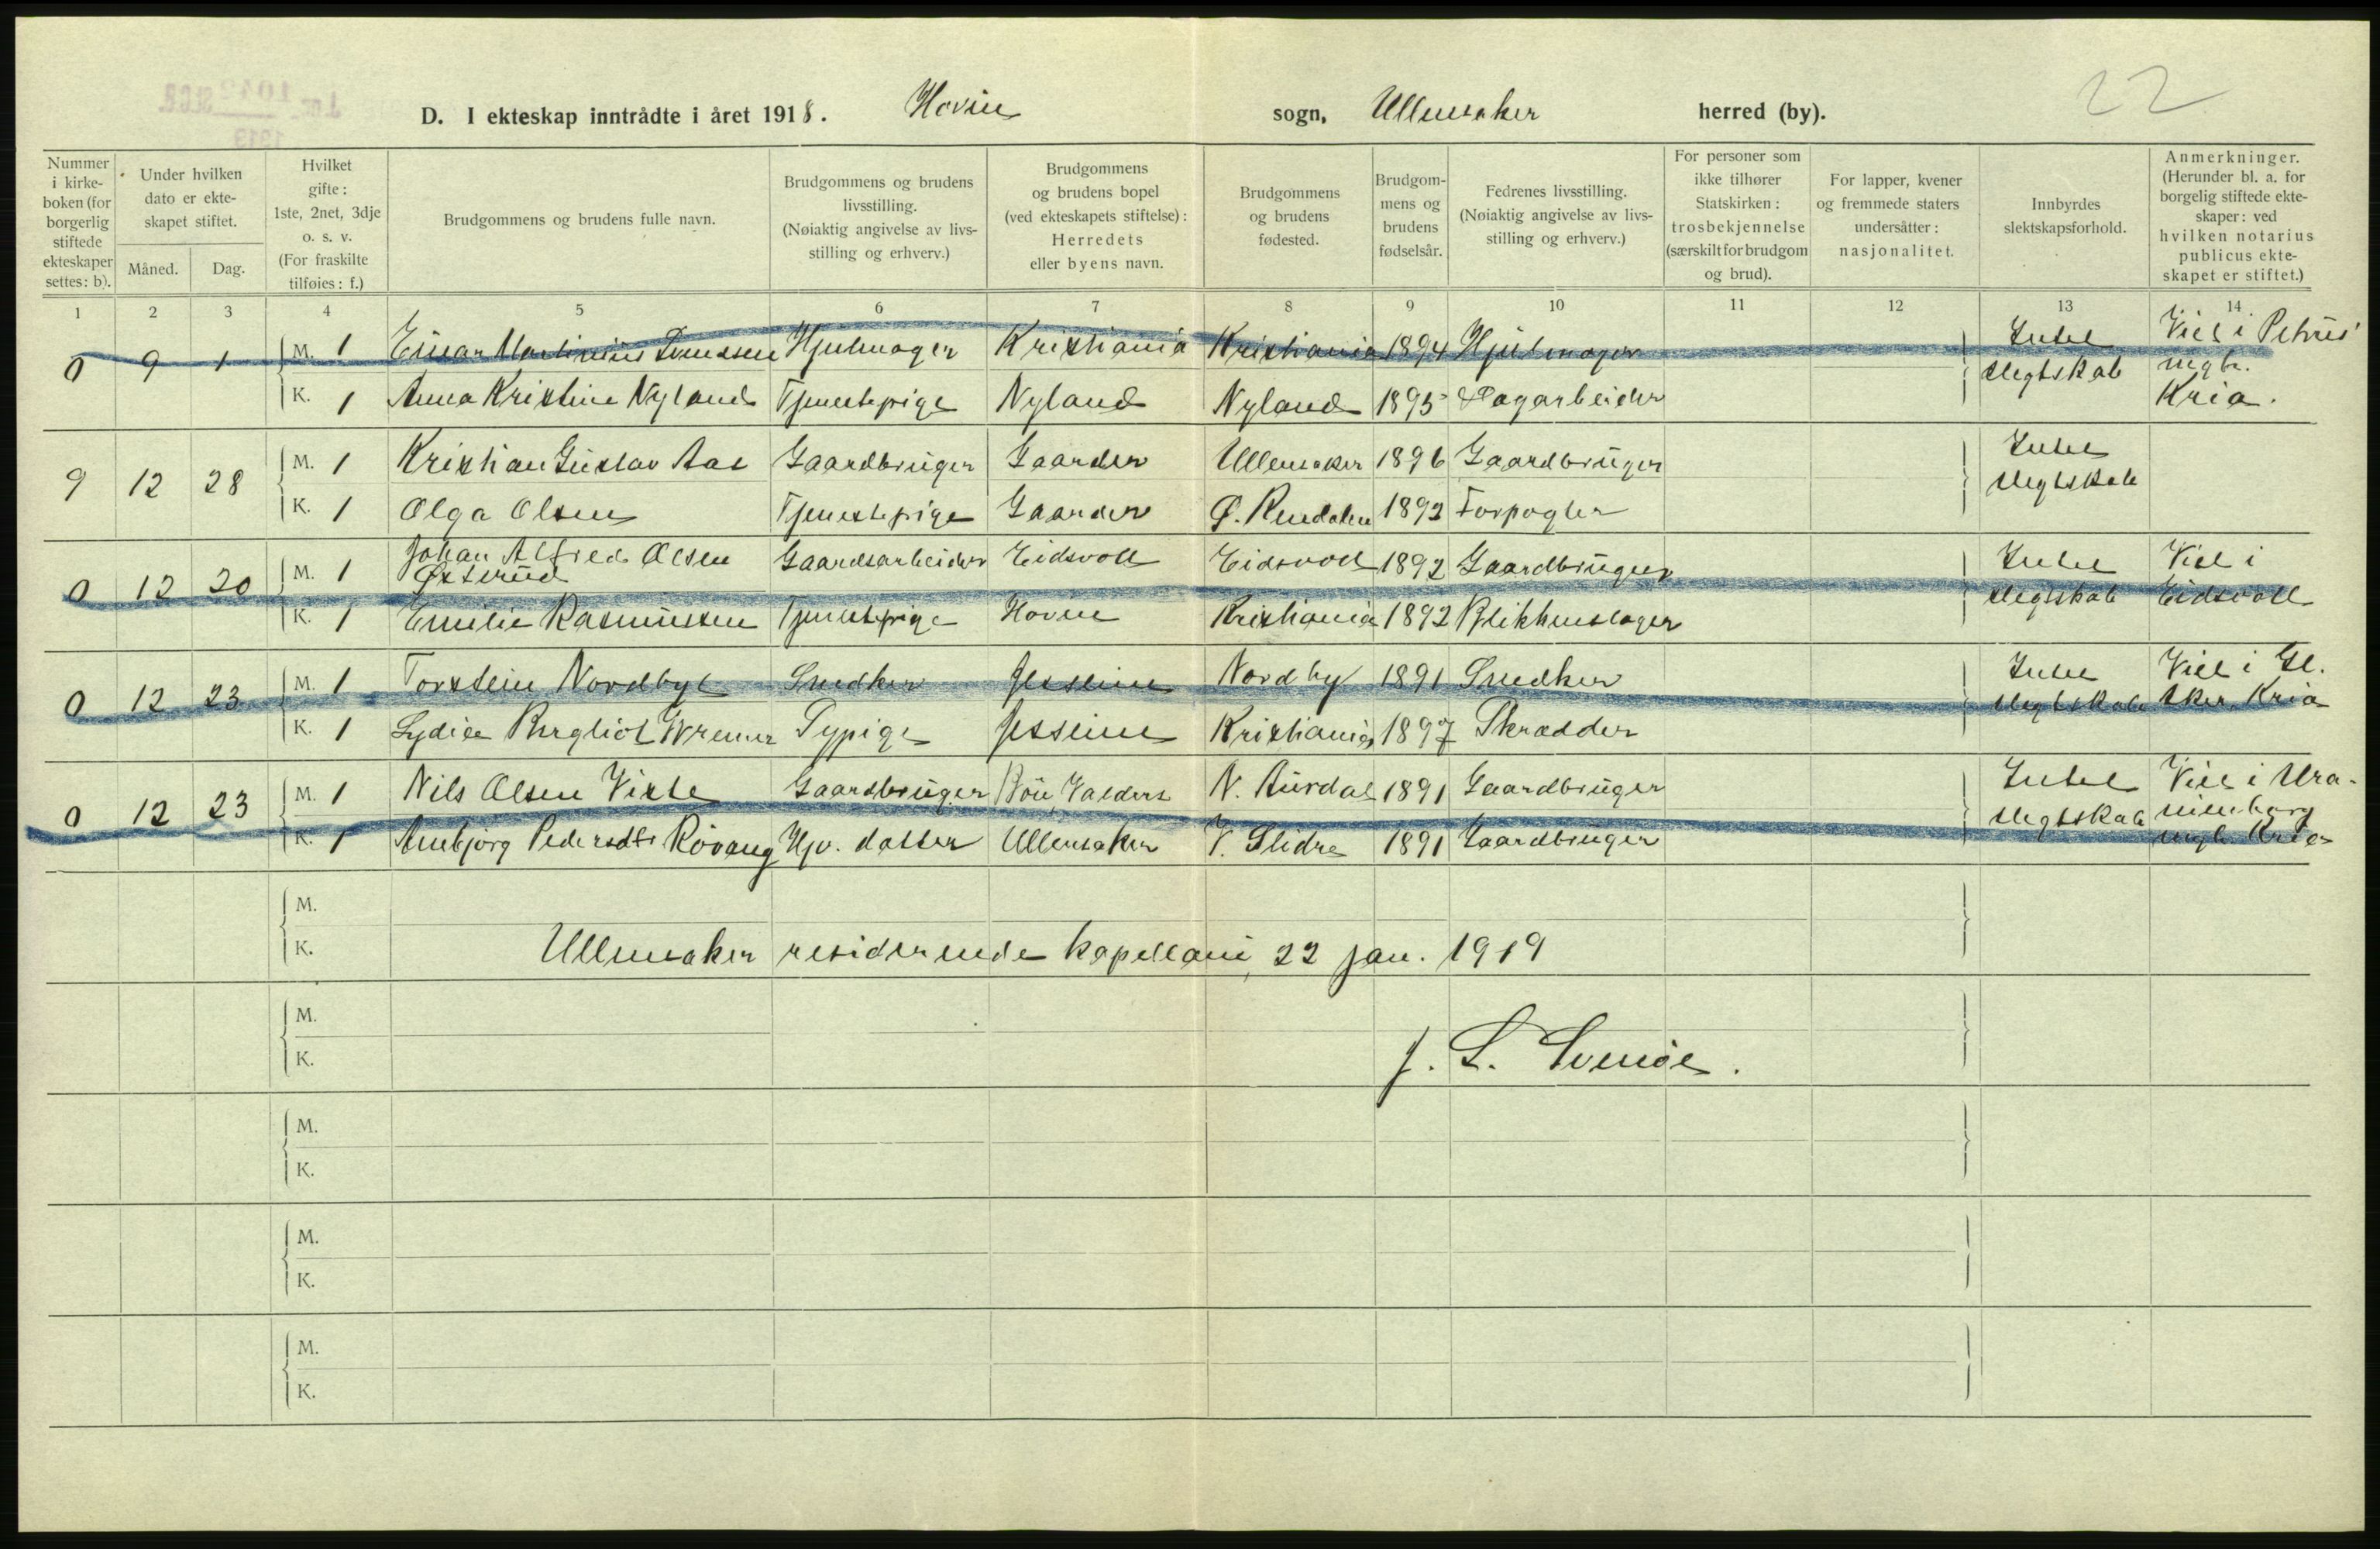 22
D. I ekteskap inntrådte i året 1918. Hovin sogn, Ullensaker herred (by).
Nummer i kirke-boken (for borgerlig stiftede ekteskaper settes: b).
Under hvilken dato er ekte-skapet stiftet.
Måned. Dag.
Hvilket gifte: 1ste, 2net, 3dje o. s. v. (For fraskilte tilføies: f.)
Brudgommens og brudens fulle navn.
Brudgommens og brudens livsstilling. (Nøiaktig angivelse av livs-stilling og erhverv.)
Brudgommens og brudens bopel (ved ekteskapets stiftelse): Herredets eller byens navn.
Brudgommens og brudens fødested.
Brudgom-mens og brudens fødselsår.
Fedrenes livsstilling. (Nøiaktig angivelse av livs-stilling og erhverv.)
For personer som ikke tilhører Statskirken: trosbekjennelse (særskilt for brudgom og brud).
For lapper, kvener og fremmede staters undersåtter: nasjonalitet.
Innbyrdes slektskapsforhold.
Anmerkninger. (Herunder bl. a. for borgelig stiftede ekte-skaper: ved hvilken notarius publicus ekte-skapet er stiftet.)
1 2 3 4 5 6 7 8 9 10 11 12 13 14
0 9 1 M. 1 Einar Martinius Svendsen Hjulmager Kristiania Kristiania 1894 Hjulmager Intet slegtskab Viet i Petrus' mgh. Kria.
K. 1 Anna Kristine Nyland Tjenestepige Nyland Nyland 1895 Dagarbeider
9 12 28 M. 1 Kristian Gustav Aas Gaardbruger Gaarder Ullensaker 1896 Gaardbruger Intet slegtskab
K. 1 Olga Olsen Tjenestepige Gaarder Ø. Rendalen 1892 Forpagter
0 12 20 M. 1 Johan Alfred Olsen Østerud Gaardsarbeider Eidsvoll Eidsvoll 1892 Gaardbruger Intet slegtskab Viet i Eidsvoll
K. 1 Emilie Rasmussen Tjenestepige Hovin Kristiania 1892 Blikkenslager
0 12 23 M. 1 Torstein Nordbye Snedker Jessheim Nordby 1891 Snedker Intet slegtskab Viet i Gl. Aker Kria
K. 1 Lydia Bergliot Wremer Sypige Jessheim Kristiania 1897 Skrædder
0 12 23 M. 1 Nils Olsen Viste Gaardbruger Bøn, Valders N. Aurdal 1891 Gaardbruger Intet slegtskab Viet i Ura-nienborg mgh. Kria
K. 1 Ambjørg Pedersdtr Røvang Hjv. datter Ullensaker V. Slidre 1891 Gaardbruger
M.
K.
Ullensaker residerende kapellani, 22 jan. 1919
M.
K.
J. L. Svenøe.
M.
K.
M.
K.
M.
K.